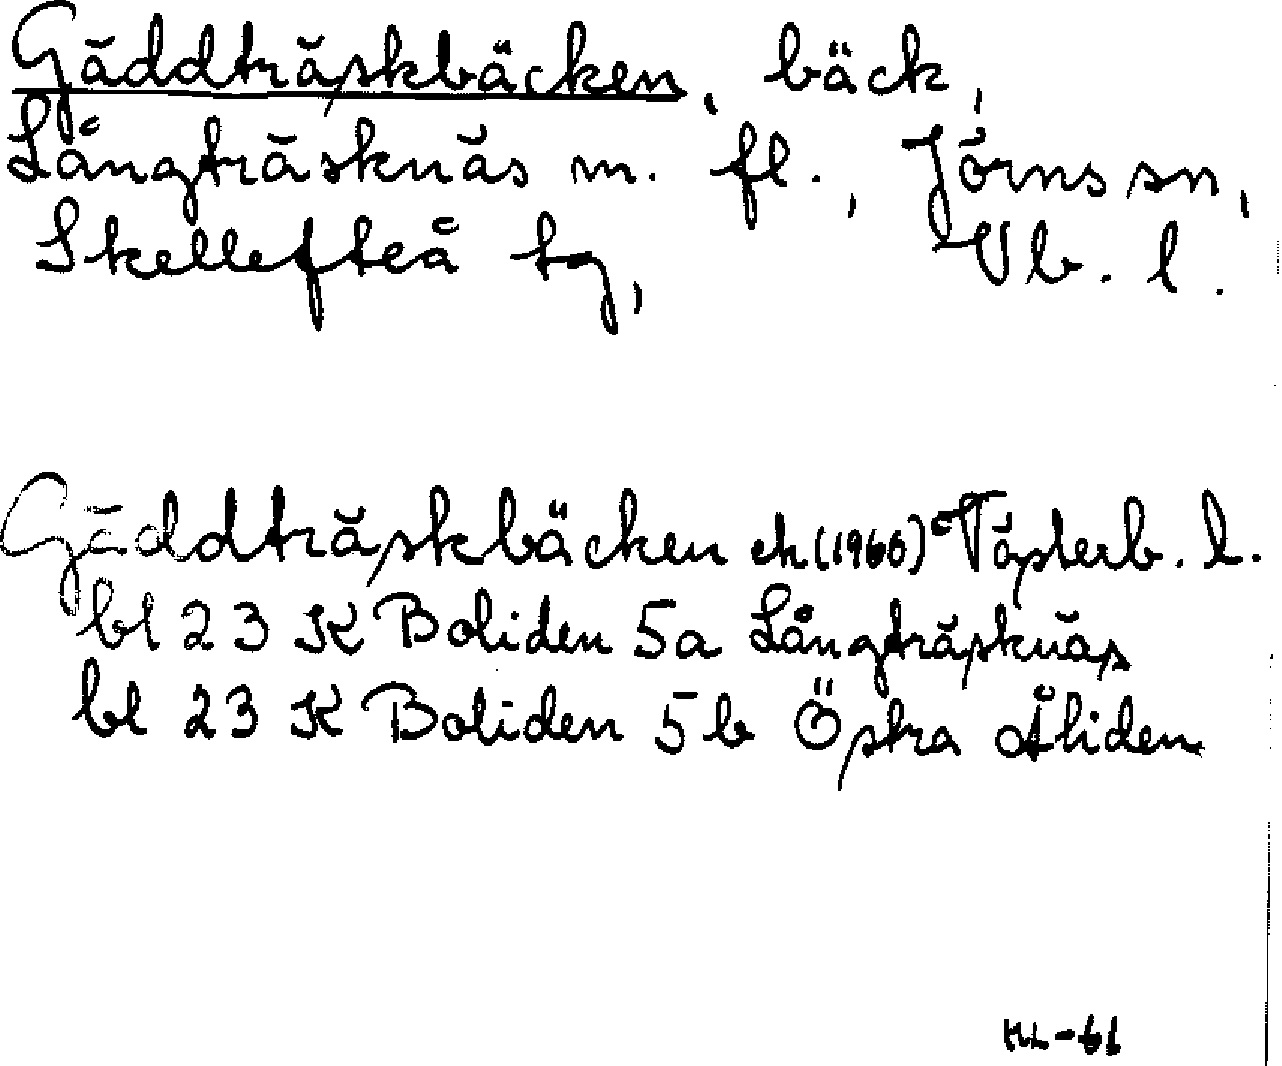 Gäddträskbäcken, bäck,
Långträsknäs m. fl., Jörns sn,
Skellefteå tg, Vb. l.
Gäddträskbäcken ek (1966) Västerb. l.
bl 23 K Boliden 5a Långträsknäs
bl 23 K Boliden 5b Östra Åliden